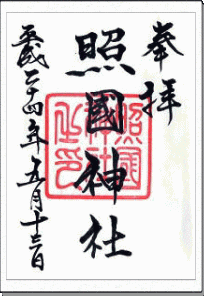 奉拝
照國神社
平成二十四年五月十三日